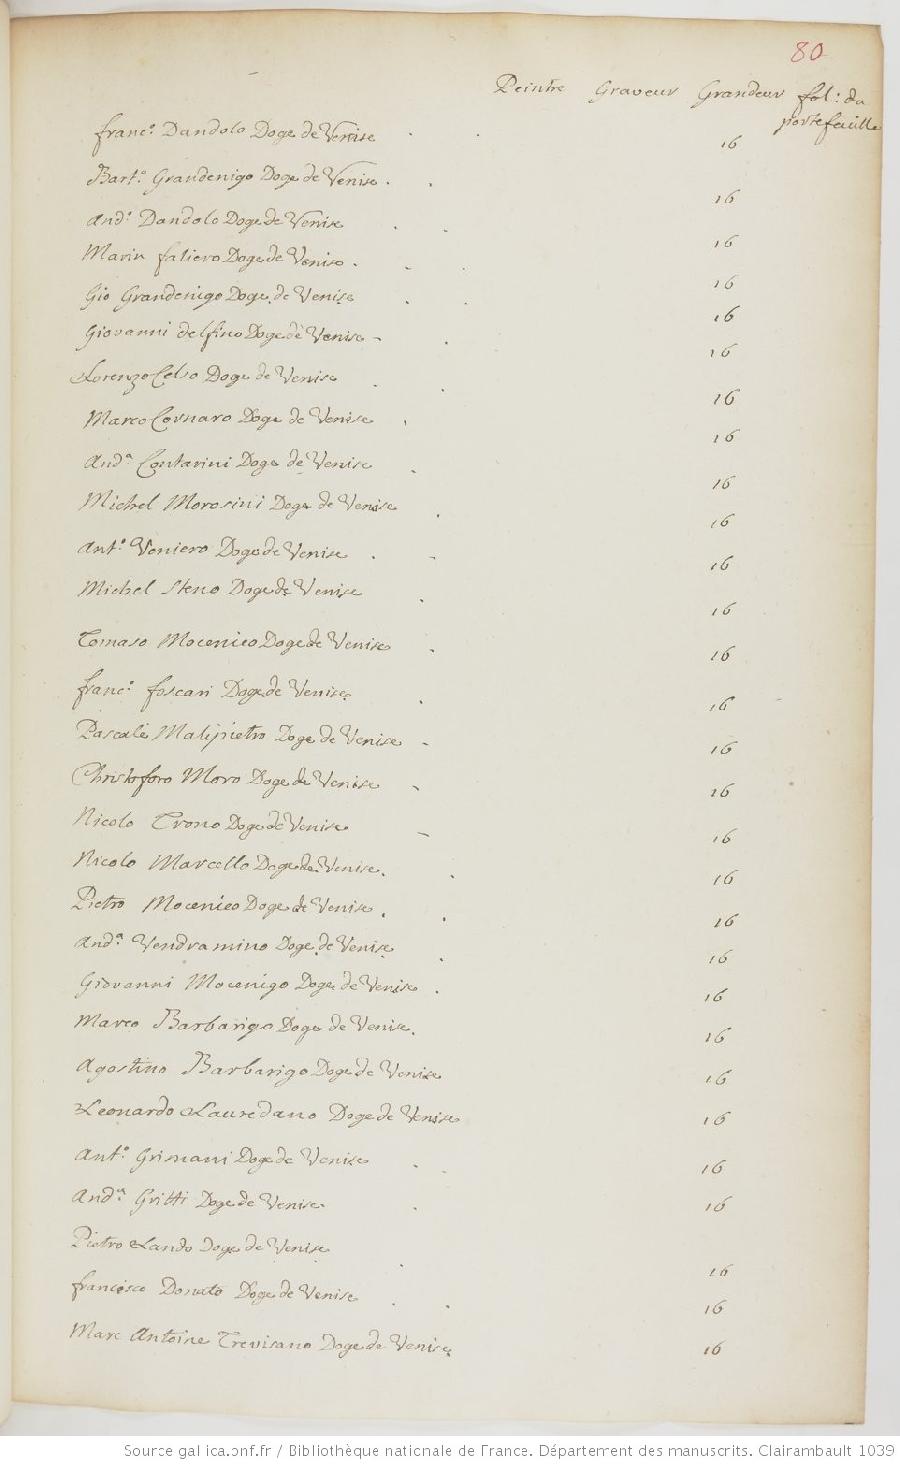 80
Peintre Graveur Grandeur fol: du
portefeuille
franc.º Dandolo Doge de Venise 16
Bart.º Grandenigo Doge de Venise. 16
And.º Dandolo Doge de Venise 16
Marin faliero Doge de Venise. 16
Gio Grandenigo Doge de Venise 16
Giovanni delfino Doge de Venise 16
Lorenzo Celso Doge de Venise 16
Marco Cornaro Doge de Venise 16
And.ª Contarini Doge de Venise 16
Michel Morosini Doge de Venise 16
Ant.º Veniero Doge de Venise 16
Michel Steno Doge de Venise 16
Tomaso Mocenico Doge de Venise 16
franc.º foscari Doge de Venise 16
Pascale Malipietro Doge de Venise 16
Christoforo Moro Doge de Venise 16
Nicolo Trono Doge de Venise 16
Nicolo Marcello Doge de Venise. 16
Pietro Mocenico Doge de Venise. 16
And.ª Vendramino Doge de Venise 16
Giovanni Mocenigo Doge de Venise. 16
Marco Barbarigo Doge de Venise. 16
Agostino Barbarigo Doge de Venise 16
Leonardo Lauredano Doge de Venise 16
Ant.º Grimani Doge de Venise 16
And.ª Gritti Doge de Venise 16
Pietro Lando Doge de Venise 16
francisco Donato Doge de Venise 16
Marc Antoine Trevisano Doge de Venise 16
Source gallica.bnf.fr / Bibliothèque nationale de France. Département des manuscrits. Clairambault 1039